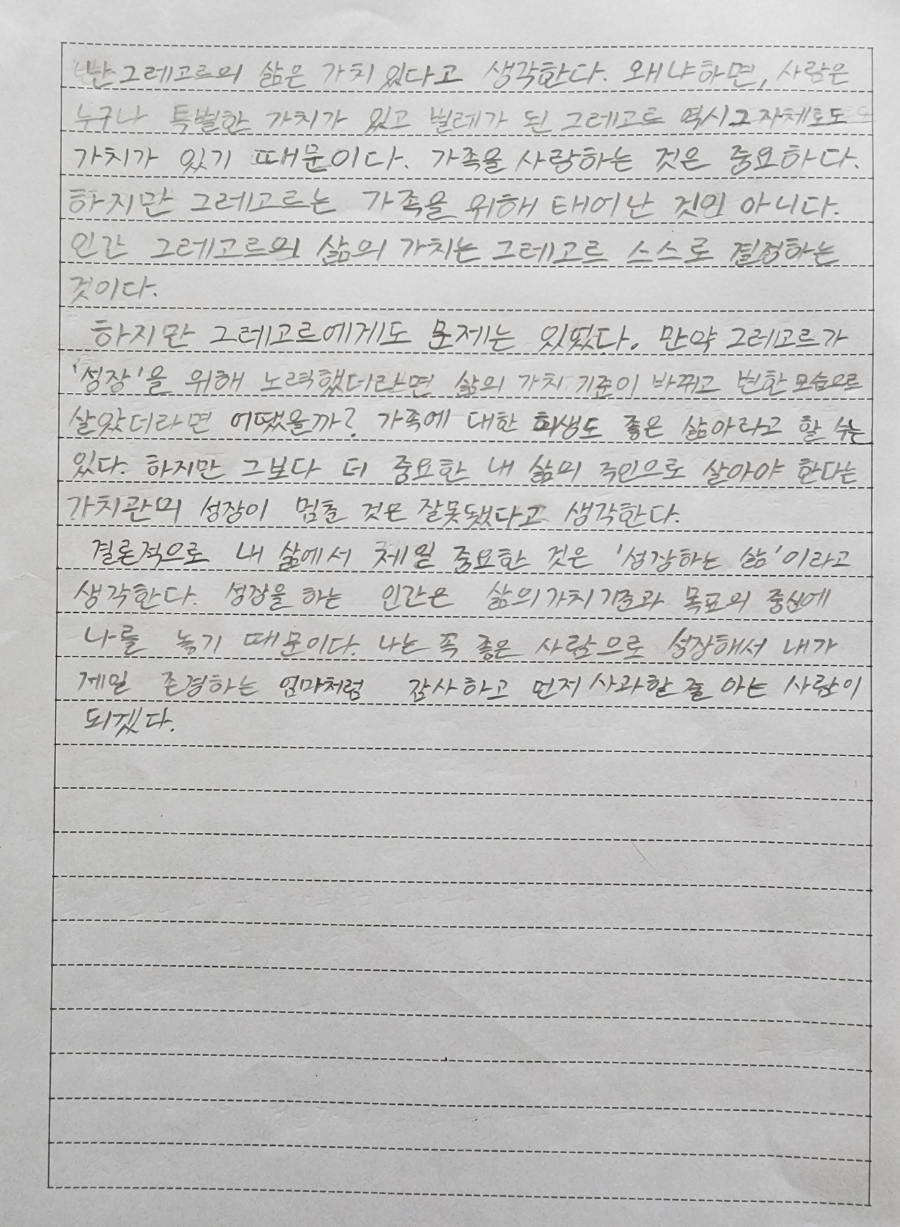 난 그레고르의 삶은 가치 있다고 생각한다. 왜냐하면, 사람은
누구나 특별한 가치가 있고 벌레가 된 그레고르 역시 그 자체로도
가치가 있기 때문이다. 가족을 사랑하는 것은 중요하다.
하지만 그레고르는 가족을 위해 태어난 것인 아니다.
인간 그레고르의 삶의 가치는 그레고르 스스로 결정하는
것이다.
하지만 그레고르에게도 문제는 있었다. 만약 그레고르가
'성장'을 위해 노력했더라면 삶의 가치 기준이 바뀌고 변한 모습으로
살았더라면 어땠을까? 가족에 대한 희생도 좋은 삶아라고 할 수는
있다. 하지만 그보다 더 중요한 내 삶의 주인으로 살아야 한다는
가치관의 성장이 멈춘 것은 잘못됐다고 생각한다.
결론적으로 내 삶에서 제일 중요한 것은 '성장하는 삶'이라고
생각한다. 성장을 하는 인간은 삶의 가치 기준과 목표의 중심에
나를 놓기 때문이다. 나는 꼭 좋은 사람으로 성장해서 내가
제일 존경하는 엄마처럼 감사하고 먼저 사과할 줄 아는 사람이
되겠다.